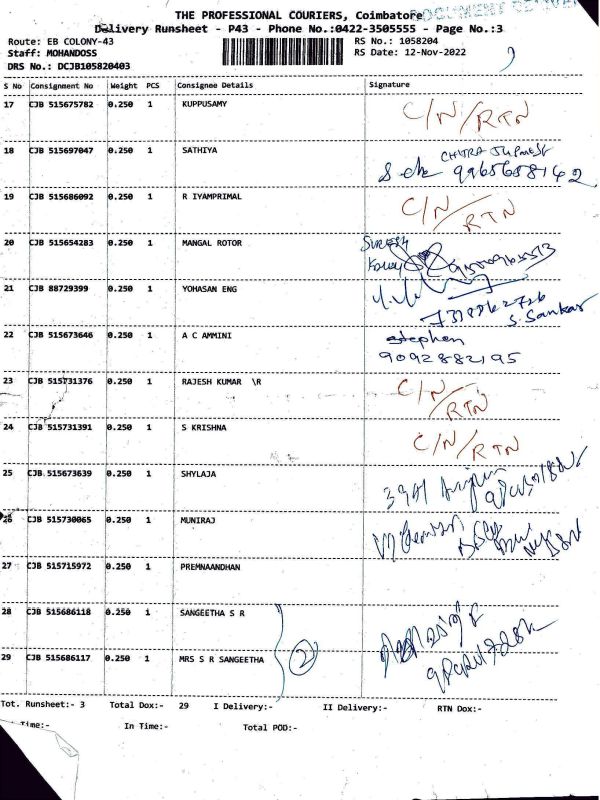 THE PROFESSIONAL COURIERS, Coimbatore
Delivery Runsheet - P43 - Phone No.:0422-3505555 - Page No.:3
Route: EB COLONY-43 RS No.: 1058204
Staff: MOHANDOSS RS Date: 12-Nov-2022
DRS No.: DCJB105820403
S No Consignment No Weight PCS Consignee Details Signature
17 CJB 515675782 0.250 1 KUPPUSAMY C/N/RTN
18 CJB 515697047 0.250 1 SATHIYA
9965658142
19 CJB 515686092 0.250 1 R IYAMPRIMAL C/N/RTN
20 CJB 515654283 0.250 1 MANGAL ROTOR SURESH
21 CJB 88729399 0.250 1 YOHASAN ENG
S. Sankar
22 CJB 515673646 0.250 1 A C AMMINI stephen
9092882195
23 CJB 515731376 0.250 1 RAJESH KUMAR \R C/N/RTN
24 CJB 515731391 0.250 1 S KRISHNA C/N/RTN
25 CJB 515673639 0.250 1 SHYLAJA
26 CJB 515730065 0.250 1 MUNIRAJ
27 CJB 515715972 0.250 1 PREMNAANDHAN
28 CJB 515686118 0.250 1 SANGEETHA S R
2
29 CJB 515686117 0.250 1 MRS S R SANGEETHA
Tot. Runsheet:- 3 Total Dox:- 29 I Delivery:- II Delivery:- RTN Dox:-
Time:- In Time:- Total POD:-